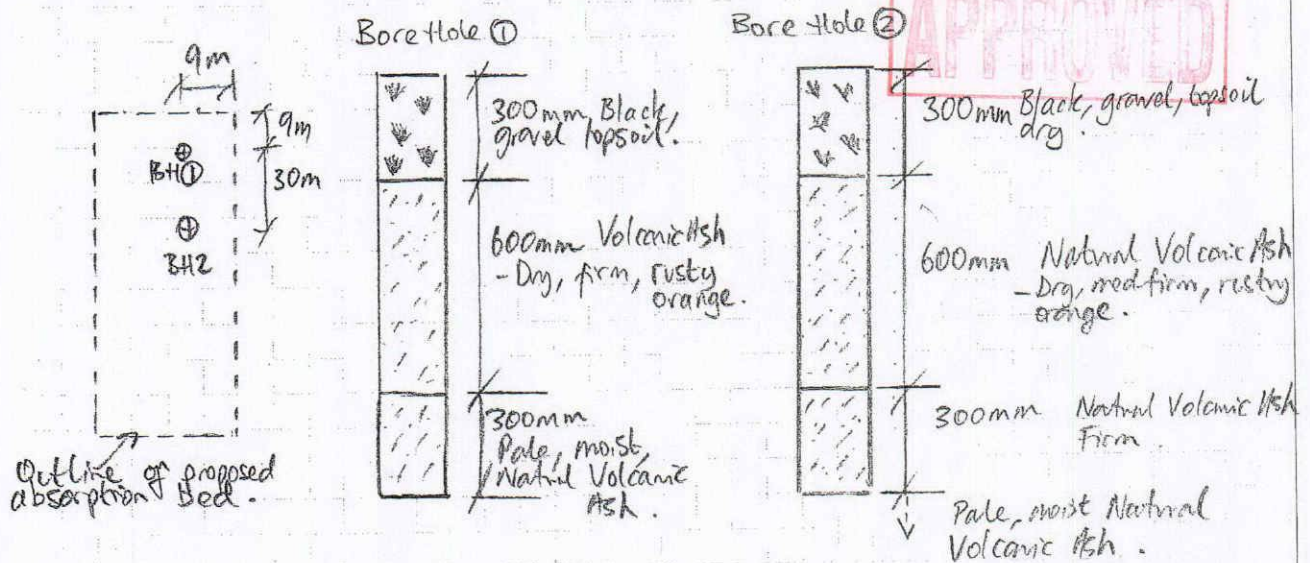 Bore Hole ①
Bore Hole ②
APPROVED
9m
9m
BH①
30m
BH2
Outline of proposed
absorption Bed.
300mm Black,
gravel topsoil.
600mm Volcanic Ash
- Dry, firm, rusty
orange.
300mm
Pale, moist,
Natural Volcanic
Ash.
300mm Black, gravel, topsoil
dry.
600mm Natural Volcanic Ash
- Dry, med firm, rusty
orange.
300mm Natural Volcanic Ash
Firm
Pale, moist Natural
Volcanic Ash.